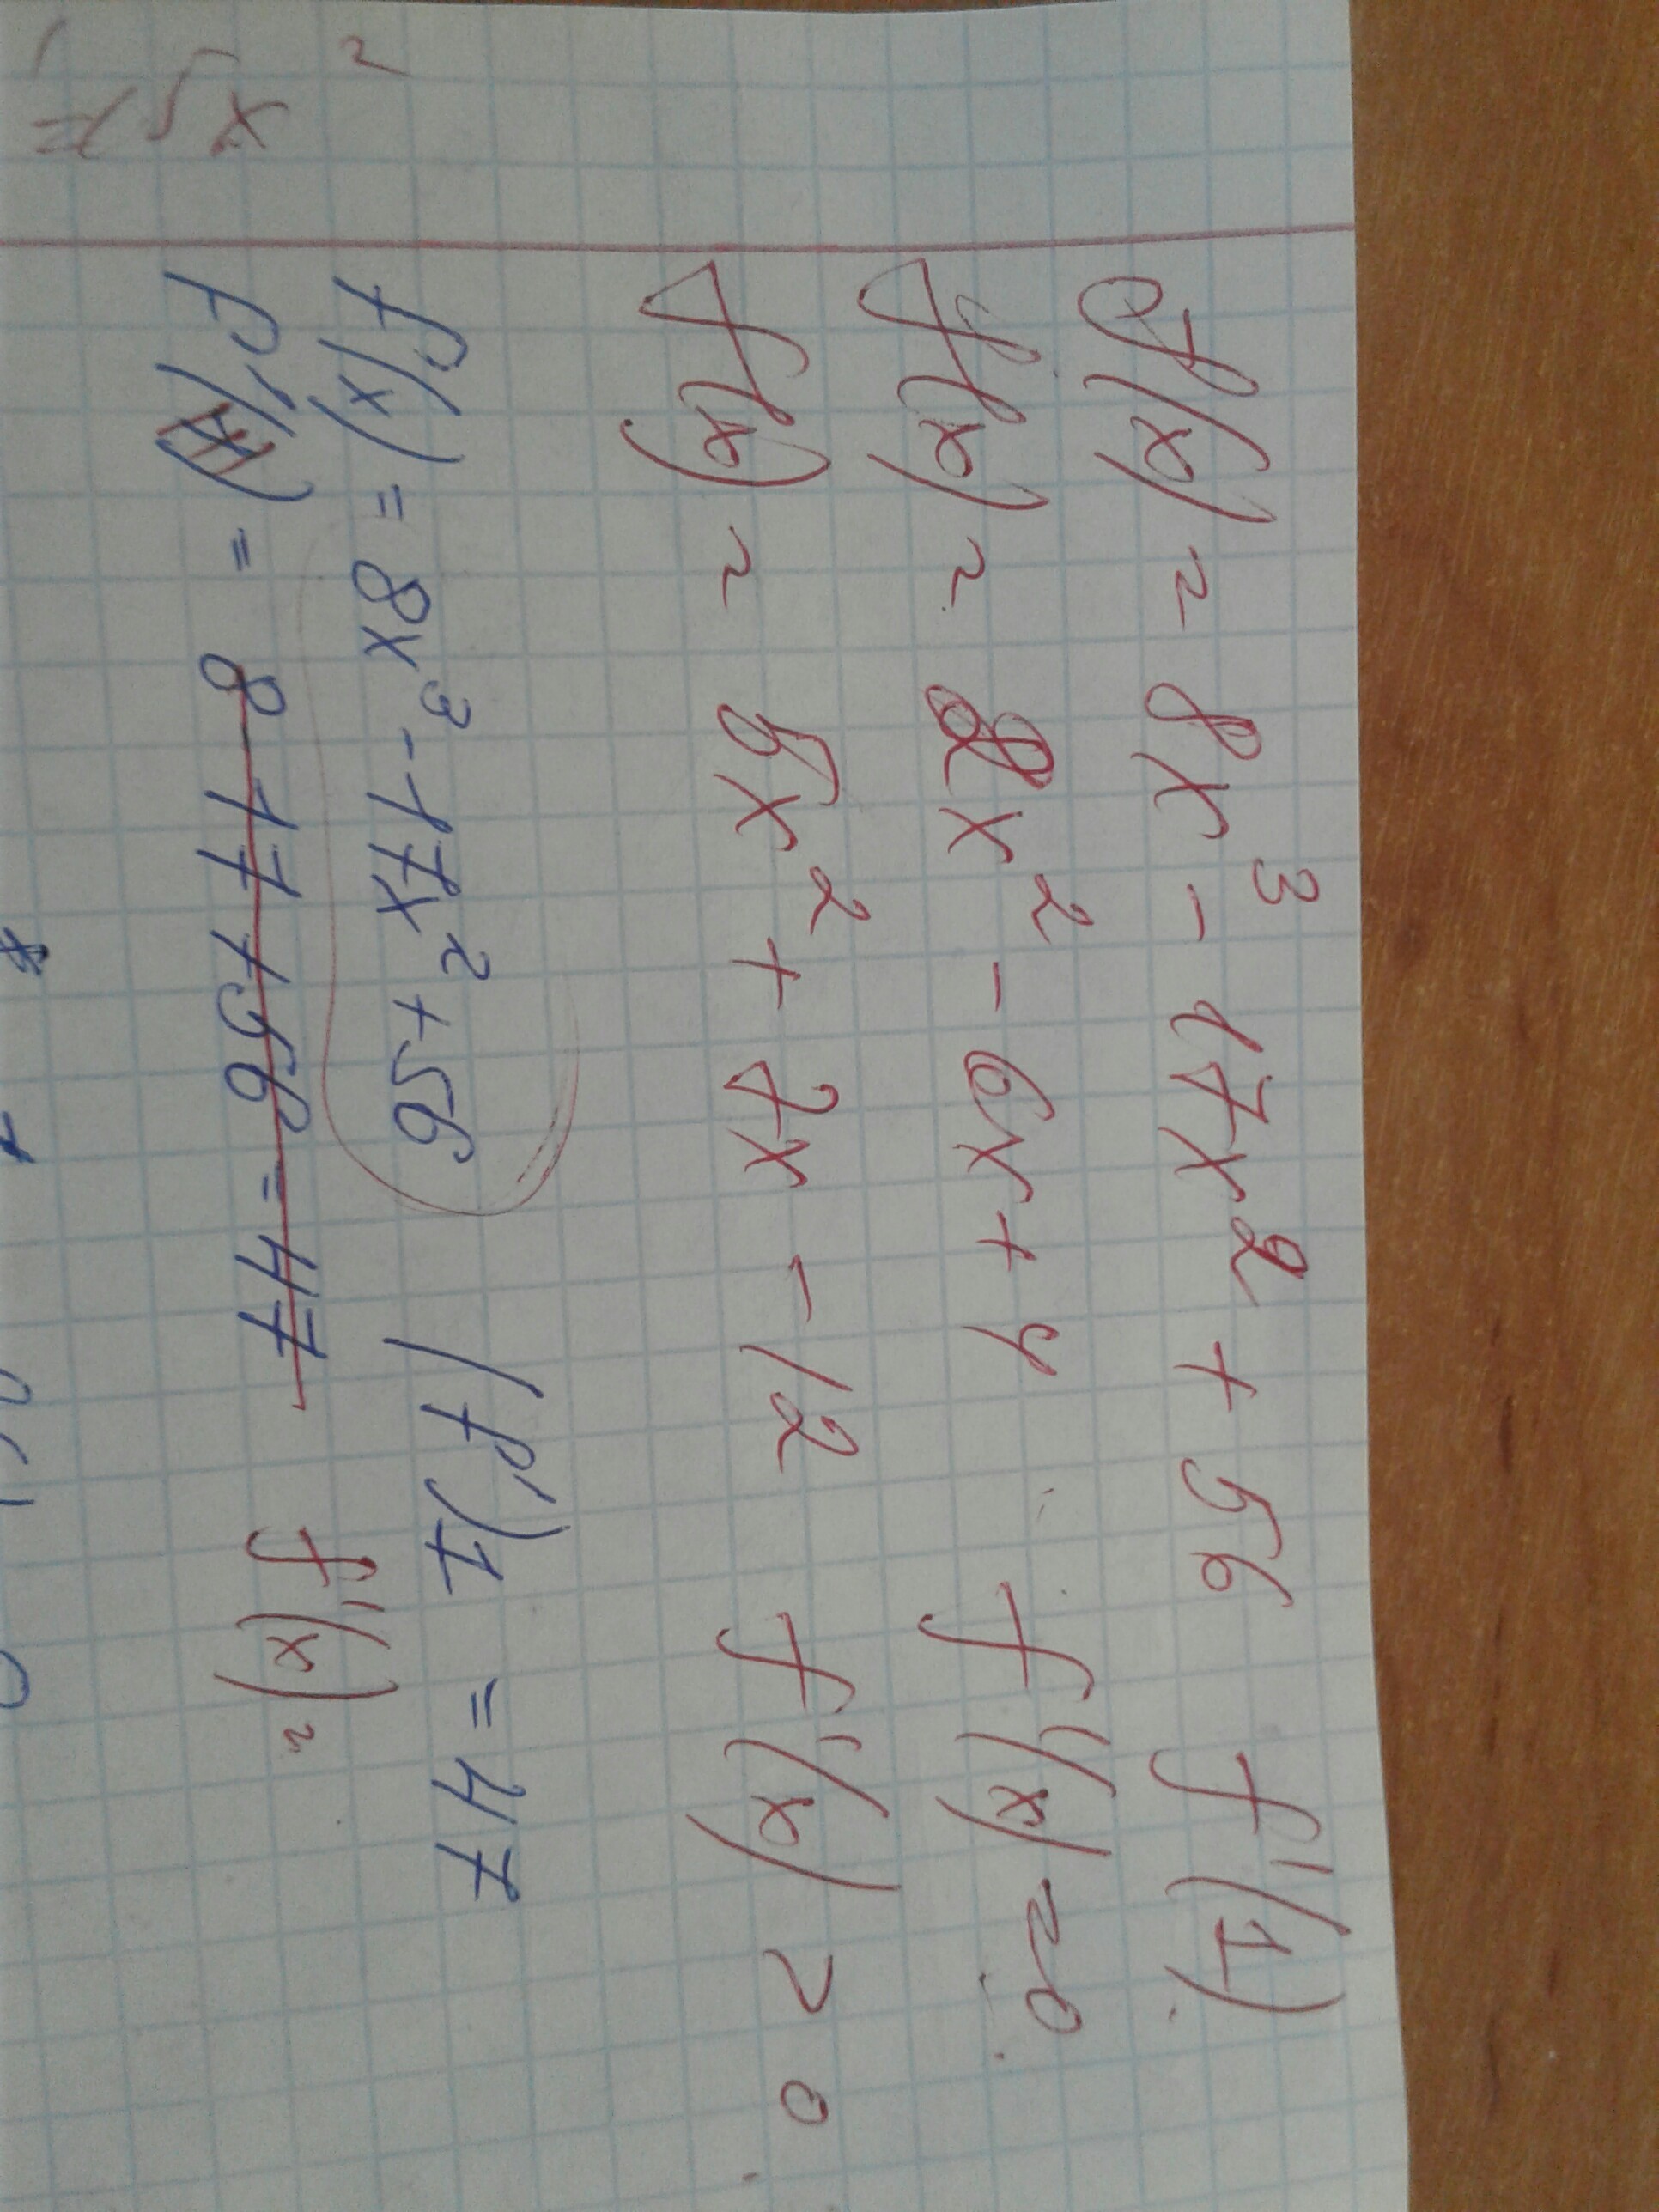 f(x) = 8x³ - 17x² + 56 f'(1)
f(x) = 2x² - 6x + 4 f'(x) = 0
f(x) = 5x² + 7x - 12 f'(x) > 0
f(x) = 8x³ - 17x² + 56 f'(1) = 47
f'( ) = 8 17 + 56 = 47 f'(x) =
5x²